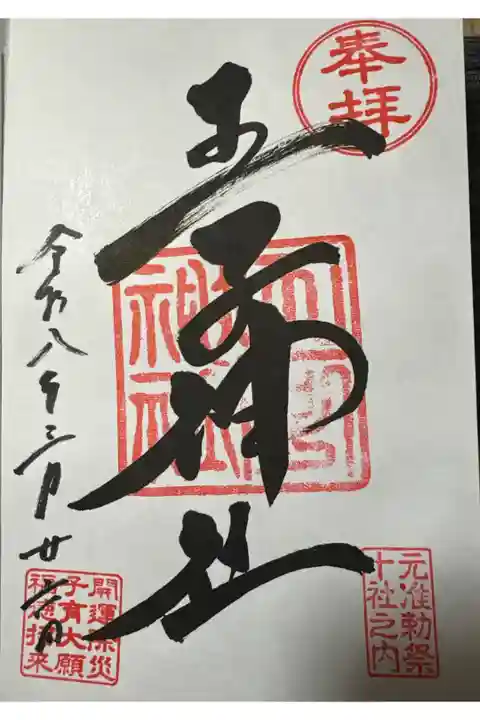 奉拝
王子神社
王子神社
令和八年三月廿日
元准勅祭
十社之内
開運除災
子育大願
招来